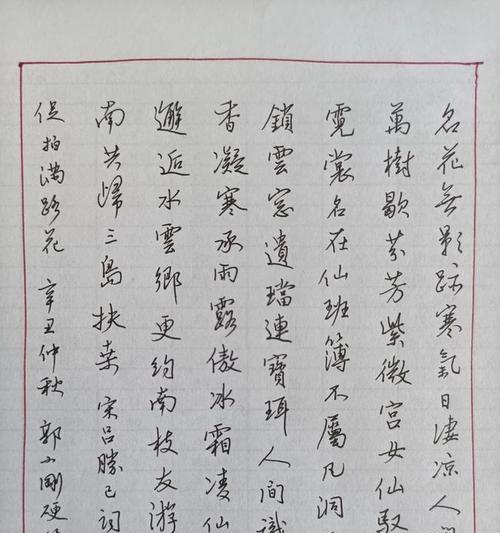 名花無影跡寒氣日凄凉人
萬樹歇芬芳紫微宮女仙馭
霓裳名在仙班簿不屬凡洞
鎖雲窓遺璫連寶珥人間識
香凝寒承雨露傲冰霜凌仙
邂逅水雲鄉更約南枝友游
南共歸三島扶桒宋吕勝己詞
促拍滿路花辛丑仲秋郭小剛硬